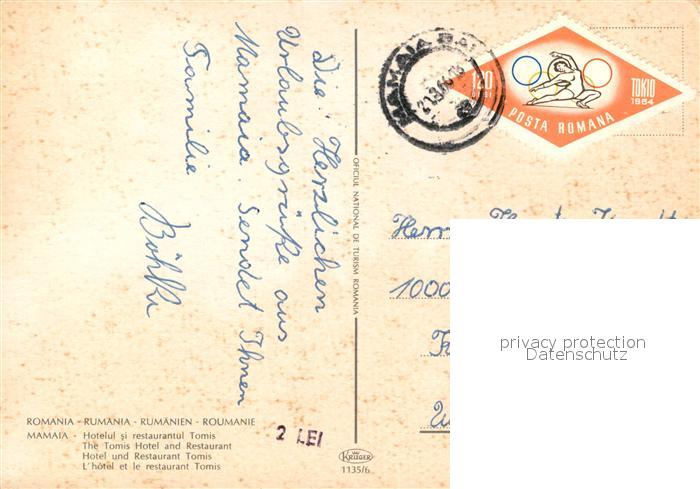 Die Herzlichen
Urlaubsgrüße aus
Mamaia. Sendet Ihnen
Familie
MAMAIA
1,20
TOKIO
1964
POSTA ROMANA
OFICIUL NATIONAL DE TURISM ROMANIA
Herrn
1000
privacy protection
Datenschutz
ROMANIA - RUMANIA - RUMÄNIEN - ROUMANIE
MAMAIA - Hotelul și restaurantul Tomis
The Tomis Hotel and Restaurant
Hotel und Restaurant Tomis
L'hôtel et le restaurant Tomis
2 LEI
KRÜGER
1135/6